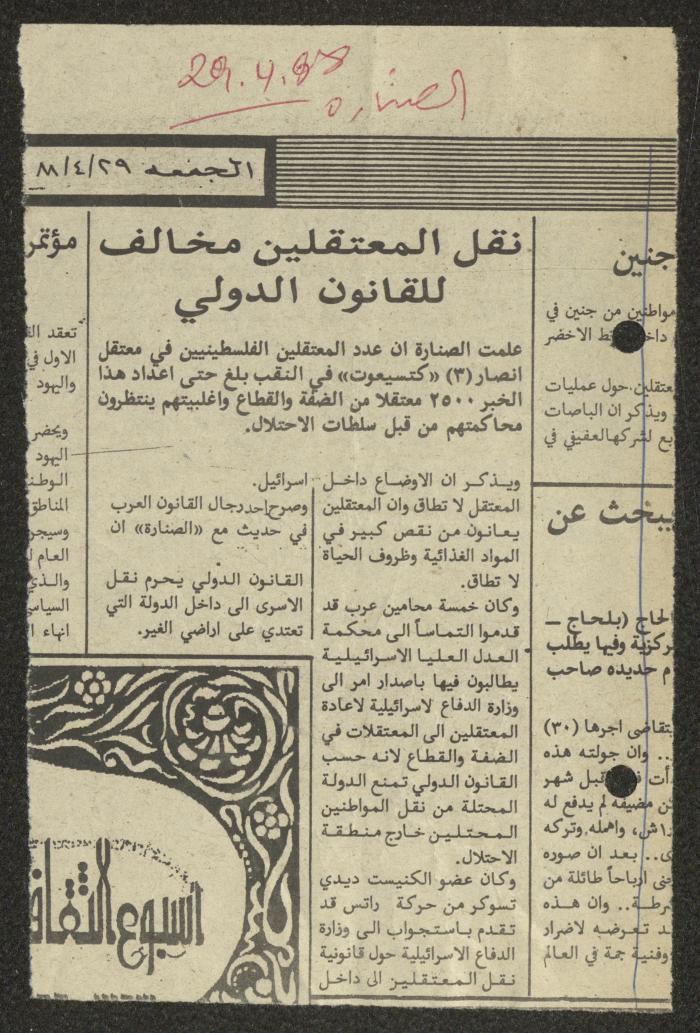 29.4.88
الصنارة
الجمعه ٨٨/٤/٢٩
نقل المعتقلين مخالف
للقانون الدولي
علمت الصنارة ان عدد المعتقلين الفلسطينيين في معتقل
انصار (٣) «كتسيعوت» في النقب بلغ حتى اعداد هذا
الخبر ٢٥٠٠ معتقلا من الضفة والقطاع واغلبيتهم ينتظرون
محاكمتهم من قبل سلطات الاحتلال.
ويذكر ان الاوضاع داخل
المعتقل لا تطاق وان المعتقلين
يعانون من نقص كبير في
المواد الغذائية وظروف الحياة
لا تطاق.
وكان خمسة محامين عرب قد
قدموا التماساً الى محكمة
العدل العليا الاسرائيلية
يطالبون فيها باصدار امر الى
وزارة الدفاع لاسرائيلية لاعادة
المعتقلين الى المعتقلات في
الضفة والقطاع لانه حسب
القانون الدولي تمنع الدولة
المحتلة من نقل المواطنين
المحتلين خارج منطقة
الاحتلال.
وكان عضو الكنيست ديدي
تسوكر من حركة راتس قد
تقدم باستجواب الى وزارة
الدفاع الاسرائيلية حول قانونية
نقل المعتقلين الى داخل
اسرائيل.
وصرح احد رجال القانون العرب
في حديث مع «الصنارة» ان
القانون الدولي يحرم نقل
الاسرى الى داخل الدولة التي
تعتدي على اراضي الغير.
جنين
مواطنين من جنين في
الاخضر
معتقلين حول عمليات
ويذكر ان الباصات
لشركة العفيفي في
يبحث عن
الحاج (بلحاج ــ
وفيها يطلب
حديده صاحب
يتقاضى اجرها (٣٠)
.. وان جولته هذه
قبل شهر
مضيفه لم يدفع له
واهمله وتركه
.. بعد ان صوره
ارباحاً طائلة من
.. وان هذه
تعرضه لاضرار
وفنية جمة في العالم
مؤتمر
تعقد
الاول في
واليهود
ويحضر
اليهود
المناطق
وسيجر
العام
والذي
انهاء
اسبوع